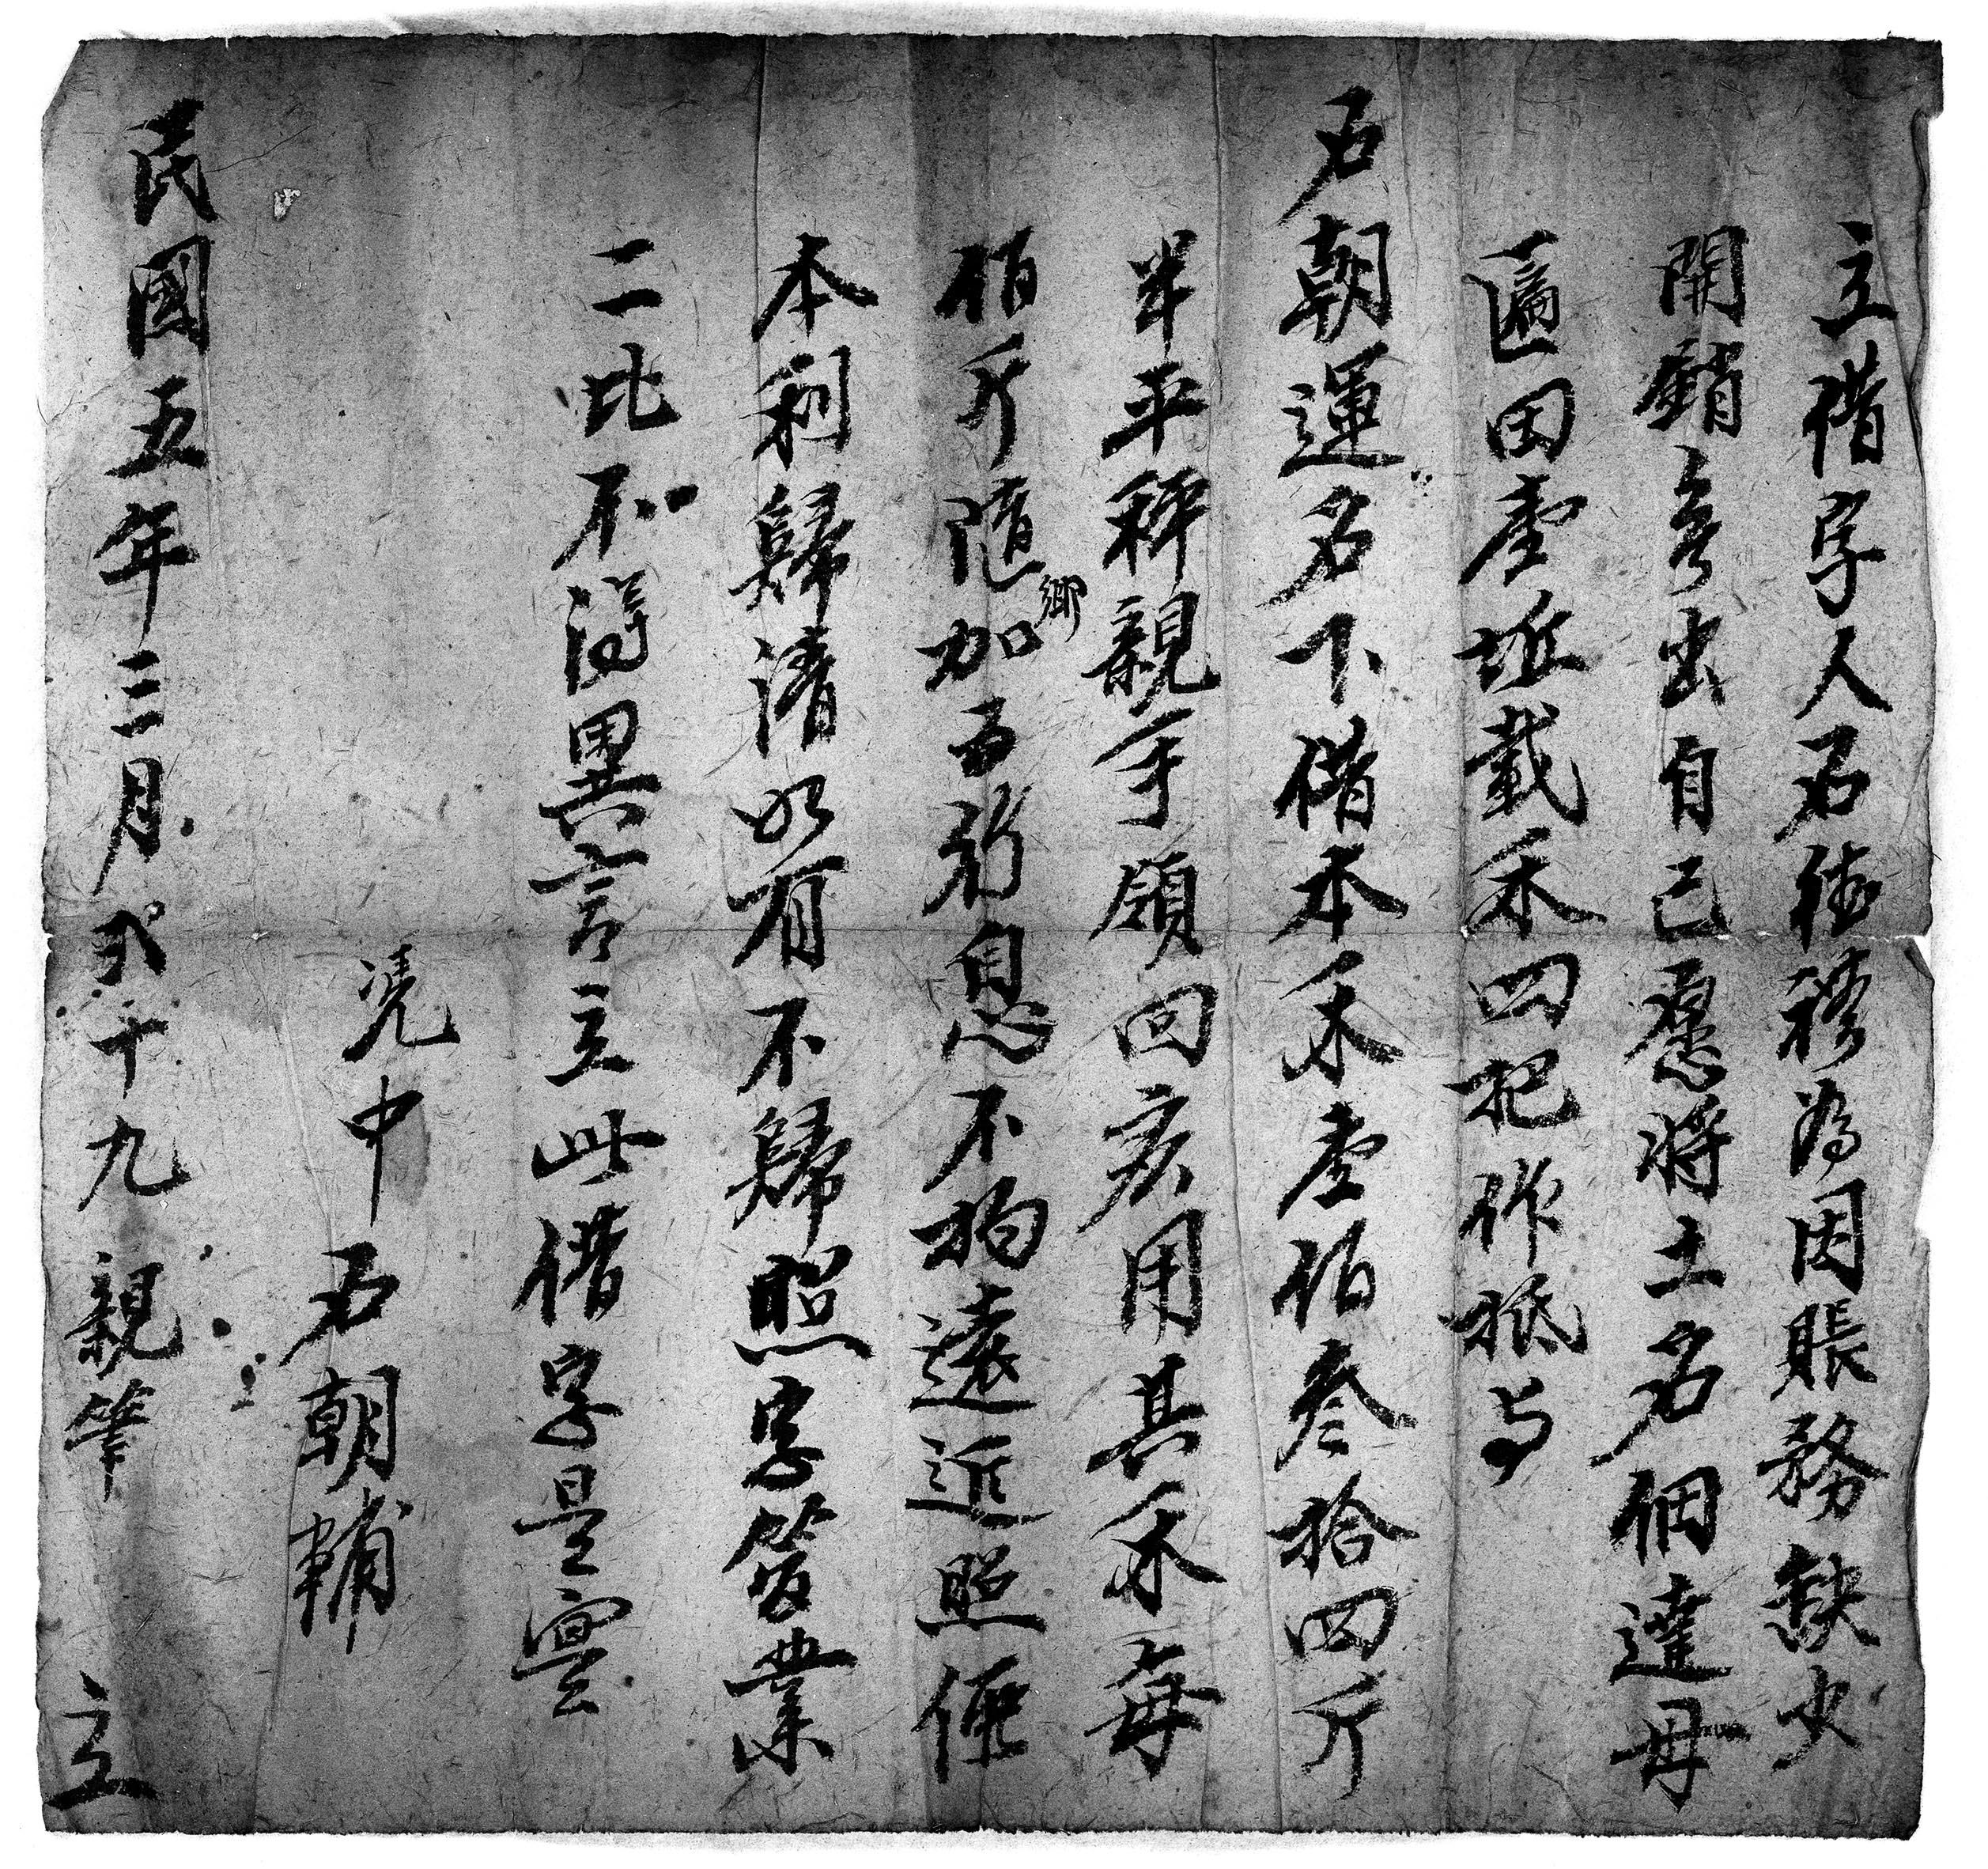 立借字人石德穆為因賬務缺少
開銷無出自己愿將土名個達毋
匾田壹坵載禾四把作抵与
石朝運名下借本禾壹佰叁拾四斤
半平秤親手領回家用其禾每
佰斤随鄉加五行息不拘遠近照俩
本利歸清如有不歸照字管業
二比不得異言立此借字是寔
憑中石朝輔
民國五年三月弍十九親筆 立